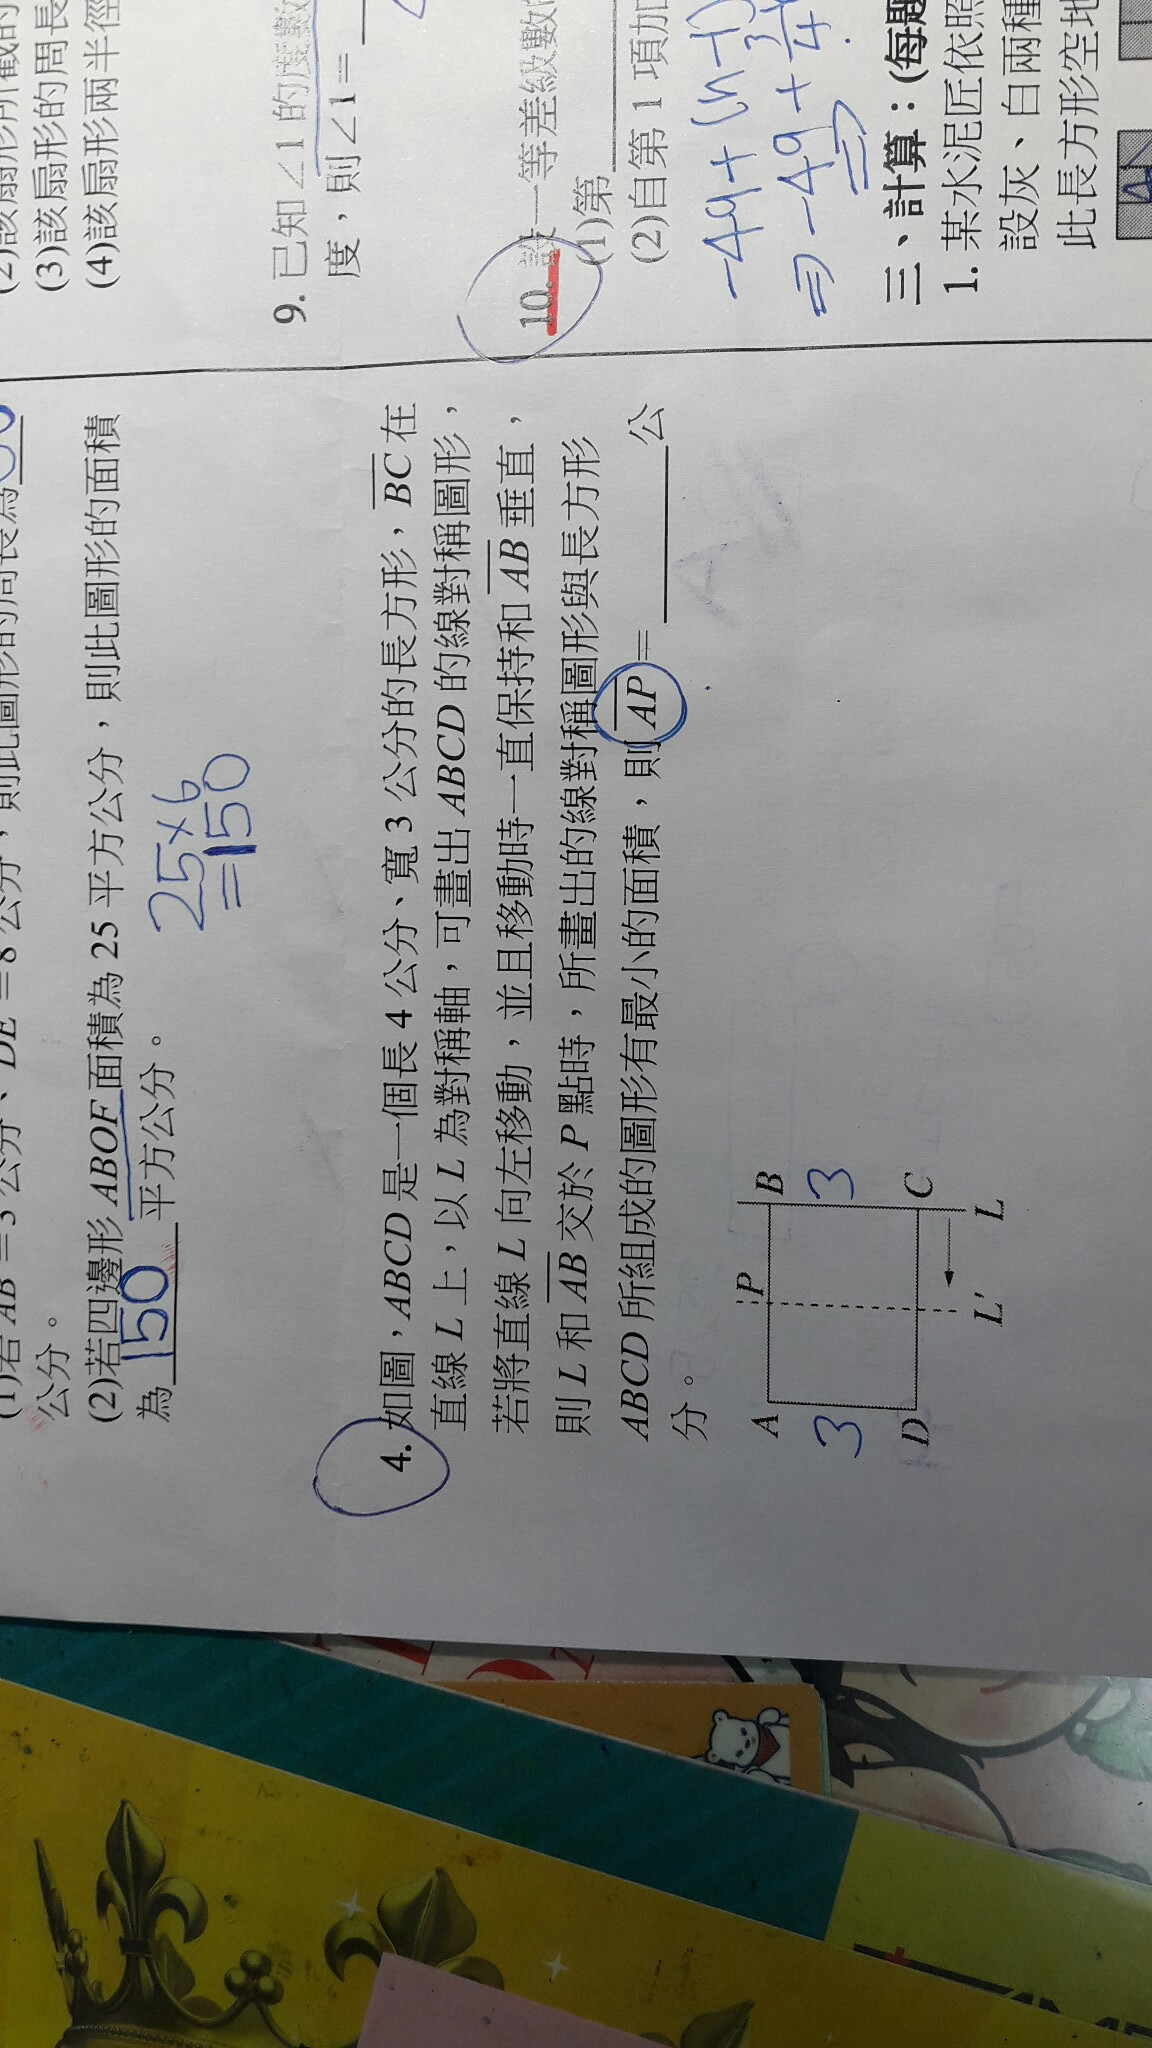 (1)若 AB=3 公分、DE=8 公分，則此圖形的周長為
公分。
(2)若四邊形 ABOF 面積為 25 平方公分，則此圖形的面積
為 150 平方公分。
25×6
=150
4. 如圖，ABCD 是一個長 4 公分、寬 3 公分的長方形，BC 在
直線 L 上，以 L 為對稱軸，可畫出 ABCD 的線對稱圖形，
若將直線 L 向左移動，並且移動時一直保持和 AB 垂直，
則 L 和 AB 交於 P 點時，所畫出的線對稱圖形與長方形
ABCD 所組成的圖形有最小的面積，則 AP = 公
分。
A P B
3 3
D C
L' L
(2)該扇形所截的
(3)該扇形的周長
(4)該扇形兩半徑
9. 已知 ∠1 的度數
度，則∠1=
10. 設一等差級數
(1)第
(2)自第 1 項加
-49+(n-1)
⇒ -49+
三、計算：(每題
1. 某水泥匠依照
設灰、白兩種
此長方形空地